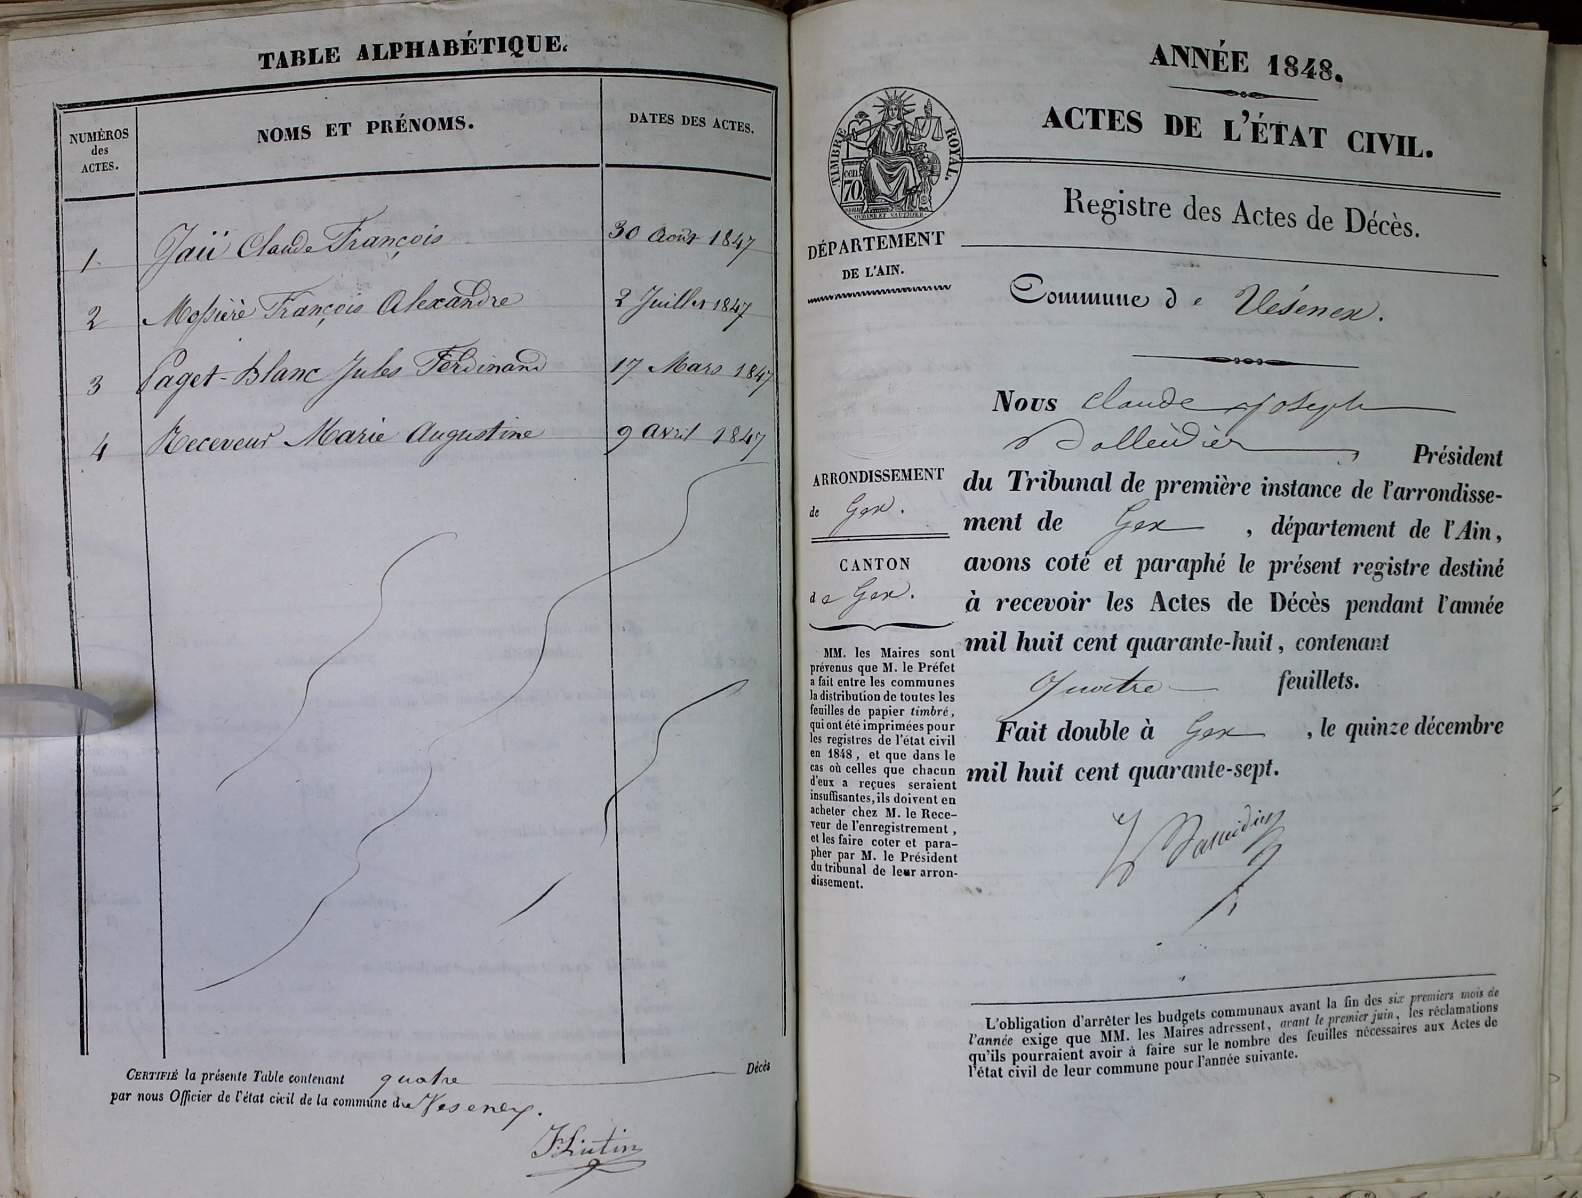 TABLE ALPHABÉTIQUE.
NUMÉROS
des
ACTES.
NOMS ET PRÉNOMS.
DATES DES ACTES.
1 Jaii Claude François 30 Août 1847
2 Mossière François Alexandre 2 Juillet 1847
3 Paget-Blanc Jules Ferdinand 17 Mars 1847
4 Receveur Marie Augustine 9 Avril 1847
CERTIFIÉ la présente Table contenant quatre Décès
par nous Officier de l'état civil de la commune de Vesenex.
ANNÉE 1848.
ACTES DE L'ÉTAT CIVIL.
TIMBRE ROYAL.
70
Registre des Actes de Décès.
DÉPARTEMENT
DE L'AIN.
Commune de Vésenex.
Nous Claude Joseph
Président
du Tribunal de première instance de l'arrondisse-
ment de Gex, département de l'Ain,
avons coté et paraphé le présent registre destiné
à recevoir les Actes de Décès pendant l'année
mil huit cent quarante-huit, contenant
Quatre feuillets.
Fait double à Gex, le quinze décembre
mil huit cent quarante-sept.
ARRONDISSEMENT
de Gex.
CANTON
de Gex.
MM. les Maires sont
prévenus que M. le Préfet
a fait entre les communes
la distribution de toutes les
feuilles de papier timbré,
qui ont été imprimées pour
les registres de l'état civil
en 1848, et que dans le
cas où celles que chacun
d'eux a reçues seraient
insuffisantes, ils doivent en
acheter chez M. le Rece-
veur de l'enregistrement,
et les faire coter et para-
pher par M. le Président
du tribunal de leur arron-
dissement.
L'obligation d'arrêter les budgets communaux avant la fin des six premiers mois de
l'année exige que MM. les Maires adressent, avant le premier juin, les réclamations
qu'ils pourraient avoir à faire sur le nombre des feuilles nécessaires aux Actes de
l'état civil de leur commune pour l'année suivante.